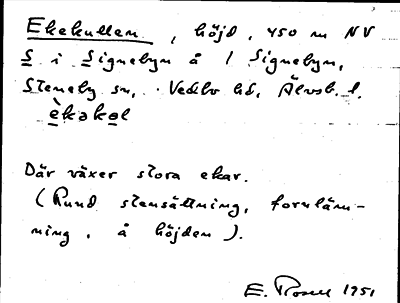 Ekekullen, höjd, 450 m NV
S i Signebyn å 1 Signebyn,
Steneby sn, Vedbo hd, Älvsb. l.
èkəkəl
Där växer stora ekar.
(Rund stensättning, fornläm-
ning, å höjden).
E. Rosell 1951